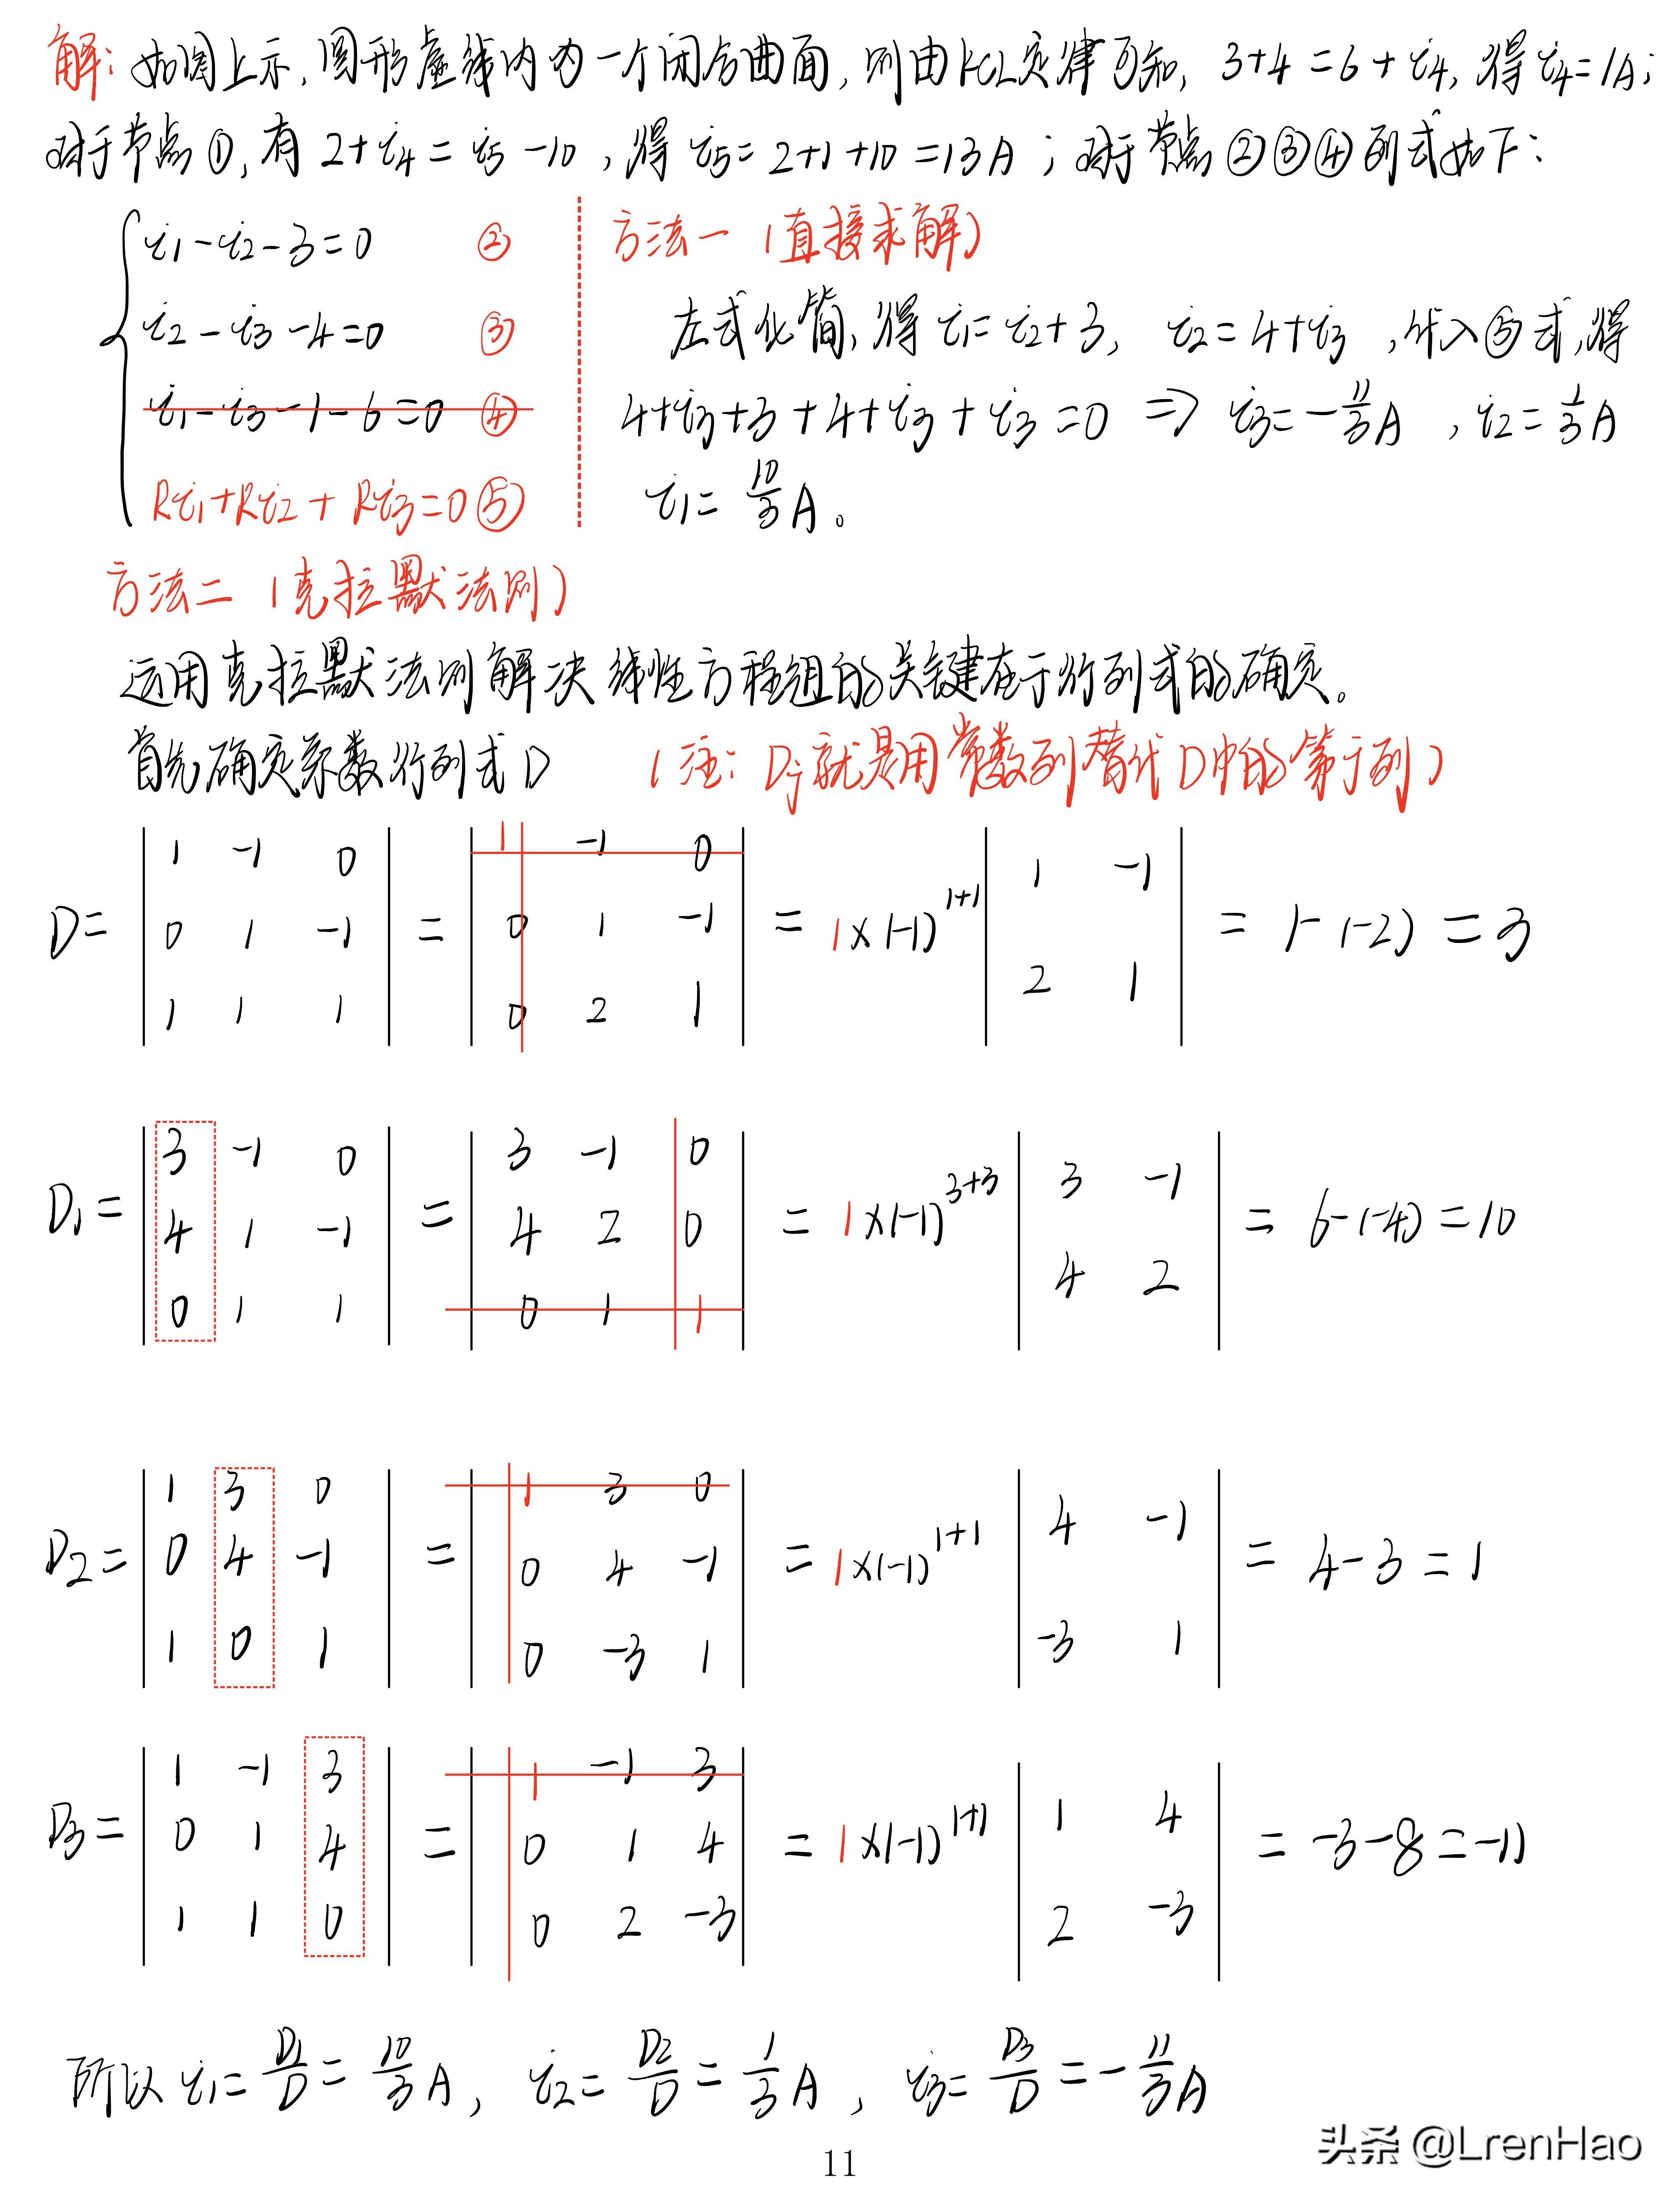 解: 如图上示, 圆形虚线内为一个闭合曲面, 则由KCL定律可知, 3+4=6+i4, 得 i4=1A;
对于节点①, 有 2+i4=i5-10, 得 i5=2+1+10=13A; 对于节点②③④列式如下:
i1-i2-3=0 ②
i2-i3-4=0 ③
i1-i3-1-6=0 ④
Ri1+Ri2+Ri3=0 ⑤
方法一 (直接求解)
左式化简, 得 i1=i2+3, i2=4+i3, 代入⑤式, 得
4+i3+3+4+i3+i3=0 ⇒ i3=-11/3A, i2=1/3A
i1=10/3A。
方法二 (克拉默法则)
运用克拉默法则解决线性方程组的关键在于行列式的确定。
首先确定系数行列式D (注: Dj就是用常数列替代D中的第j列)
D= | 1 -1 0 | = | 1 -1 0 | = 1×(-1)^1+1 | 1 -1 | = 1-(-2) = 3
| 0 1 -1 | | 0 1 -1 | | 2 1 |
| 1 1 1 | | 0 2 1 |
D1= | 3 -1 0 | = | 3 -1 0 | = 1×(-1)^3+3 | 3 -1 | = 6-(-4) = 10
| 4 1 -1 | | 4 2 0 | | 4 2 |
| 0 1 1 | | 0 1 1 |
D2= | 1 3 0 | = | 1 3 0 | = 1×(-1)^1+1 | 4 -1 | = 4-3 = 1
| 0 4 -1 | | 0 4 -1 | | -3 1 |
| 1 0 1 | | 0 -3 1 |
D3= | 1 -1 3 | = | 1 -1 3 | = 1×(-1)^1+1 | 1 4 | = -3-8 = -11
| 0 1 4 | | 0 1 4 | | 2 -3 |
| 1 1 0 | | 0 2 -3 |
所以 i1=D1/D=10/3A, i2=D2/D=1/3A, i3=D3/D=-11/3A
11
头条 @LrenHao